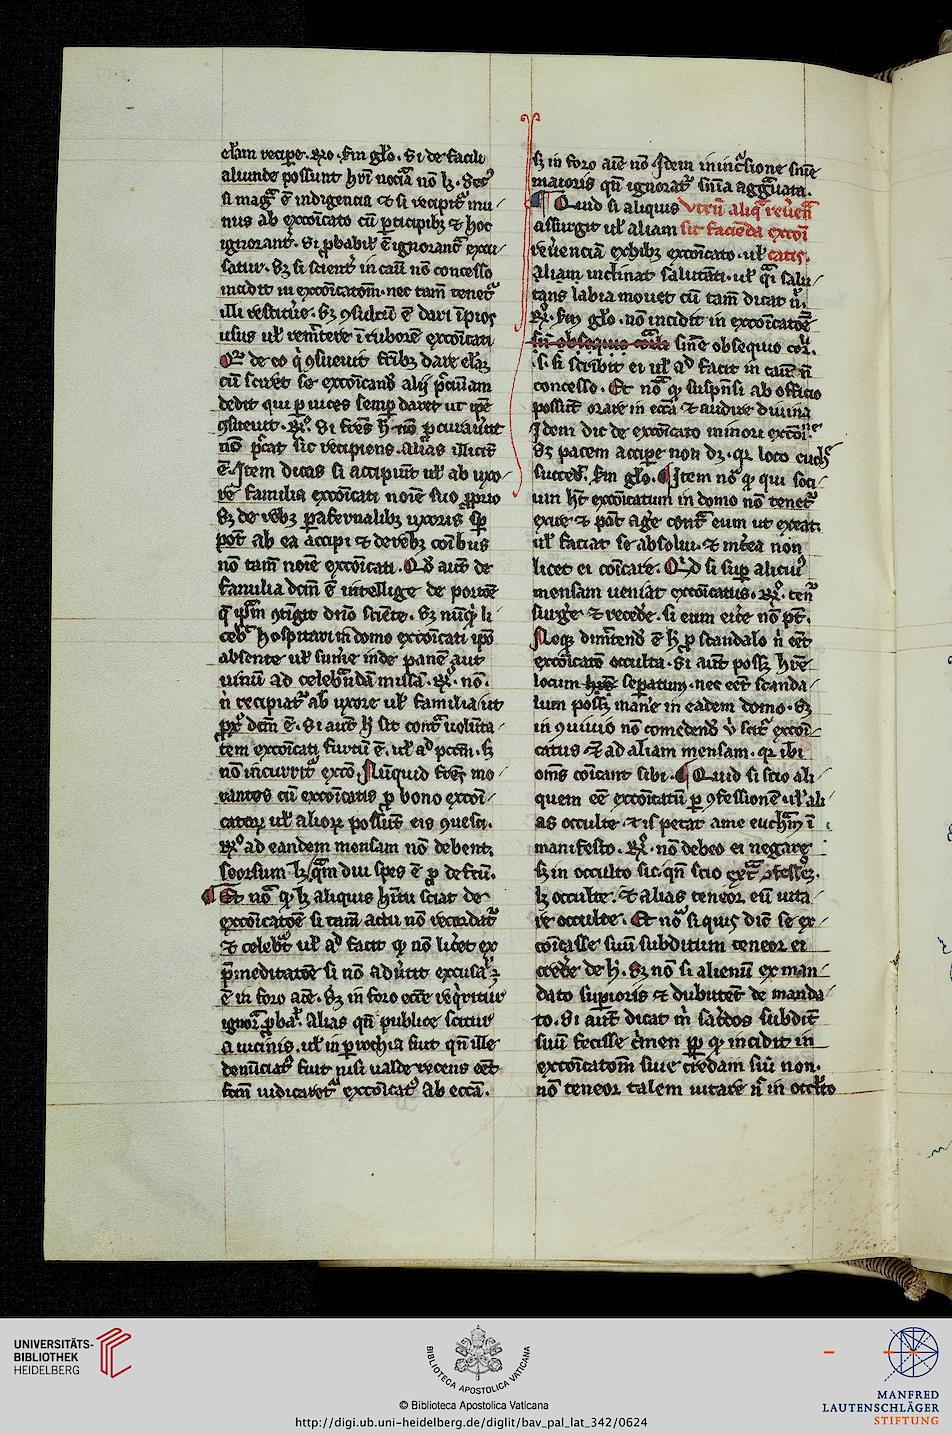 elam recipe. Rño. scdm glo. Si de facili
aliunde possunt hri nccia nō lz. Sec9
si mag̃ ē indigencia et si recipit̃ mi
nus ab excōicato cū pticipibz et hoc
ignorant. Si p̱babil ē ignorant̃ excu
satur. Sz si scient̃ in casu nō concesso
incidit in excōicatom̄. nec tam̄ tenet̃
illi restitue. Sz 9sultū ē dari ī pios
usus ul remittere ī ruborē excōicati
de eo q̇ 9sueuit fr̄ibz dare elaz
cū sciret se excōicanḋ alij pcuniam
dedit qui p uices semp̱ daret ut ipē
9sueuit. Ro. Si fres h nō p̱curauīt
nō p̱cat sic recipiens. alias illicit̃
ē. Item dicas si accipiūt ul ab uxo
re familia excōicati noīe suo p̱prio
Sz de rebz pafernalibz uxoris sp̱
pot ab ea accipi et de rebz cōibus
nō tam̄ noīe excōicati. Qd aut̄ de
familia dcm̄ ē intellige de porcōe
q̄ ip̄m 9tigit dn̄o sciēte. Sz nūq̇d li
cebt̃ hospitari in domo excōicati ip̄o
absente ul sume inde panē aut
uinū ad celebr̄andā missā. Ro. nō.
n̄ recipiat̃ ab uxore ul familia ut
px̄ dcm̄ ē. Si aut̄ h sit cont̃ uolūta
tem excōicati furtū ē. ul ad pctm̄. sz
nō incurrit̃ excō Nūquid fr̄es mo
rantes cū excōicatis p̱ bono excōi
catoꝝ ul alioꝝ possūt eis 9uesci.
Ro. ad eandem mensam nō debent
seorsum lz q̄m diu spes ē p̱ defcū.
Et nō qd lz aliquis hitu sciat de
excōicatōe si tam̄ actu nō recordat̃
et celebt̃ ul ad facit qd nō licet ex
p̱meditatōe si nō aduertit excusat̃
ē in foro aīe. Sz in foro eccē reqritur
ignor̃ p̱bat̃. Alias qn̄ publice scitur
a uicinis. ul in p̱rochia fuit qn̄ ille
denūciat̃ fuit nisi ualde recens eēt
fcm̄ iudicaret̃ excōicat9 ab eccā.
sz in foro aīe nō Idem in iniōcione sniē
maioris qn̄ ignorat̃ sniā aggrauata.
¶ Quid si aliquis Vtrū aliq̄ reuen
assurgit ul aliam sit facienda excōi
reuenciā exhibz excōicato. ul catis.
Aliam inclinat salutanti. ul q̄i salu
tans labia mouet cū tam̄ dicat n.
Ro. scdm glo. nō incidit in excōicatōē
sine obsequio cor.
S. si scribit ei ul ad facit in casu n̄
concesso. Et nō qd suspensi ab officio
possūt orare in eccā et audire diuina
Idem dic de excōicato minori excōne
Sz pacem accipe non dz. qr loco euch̃
succed. scdm glo. ¶ Item nō qd qui soci
um ht excōicatum in domo nō tenet̃
exire et pot age cont̃ eum ut exeat
ul faciat se absolui. et interea non
licet ei cōicare. Quid si sup̱ alicui9
mensam ueniat excōicatus. Ro. ten̄
surge et recede. si eum eice nō pt.
Neqz dimittend̃ ē h p̱ scandalo n̄ eēt
excōicatō occulta. Si aut̄ possz hre
locum separatum. nec eēt scanda
lum possz mane in eadem domo. Sz
in 9uiuio nō comedend̃ ubi scit̃ excōi
catus et ad aliam mensam. qr ibi
oms cōicant sibi. ¶ Quid si scio ali
quem eē excōicatū p 9fessionē. ul ali
as occulte et is petat a me euchm̄ ī
manifesto. Ro. nō debeo ei negare
sz in occulto sic. qn̄ scio ext̄ 9fessioz.
lz occulte. et alias teneor eū uita
re occulte. Et nō si quis dio se ex
cōicasse suū subditum teneor ei
crede de h. Sz nō si alienū ex man
dato superioris et dubitet̃ de manda
to. Si aut̄ dicat m̄ sacdos subdit̃
suū fecisse crimen pp̱ qd incidit in
excōicatom̄ siue credam siu non.
nō teneor talem uitare n̄ in occlto
UNIVERSITÄTS-
BIBLIOTHEK
HEIDELBERG
BIBLIOTECA APOSTOLICA VATICANA
© Biblioteca Apostolica Vaticana
http://digi.ub.uni-heidelberg.de/diglit/bav_pal_lat_342/0624
MANFRED
LAUTENSCHLÄGER
STIFTUNG